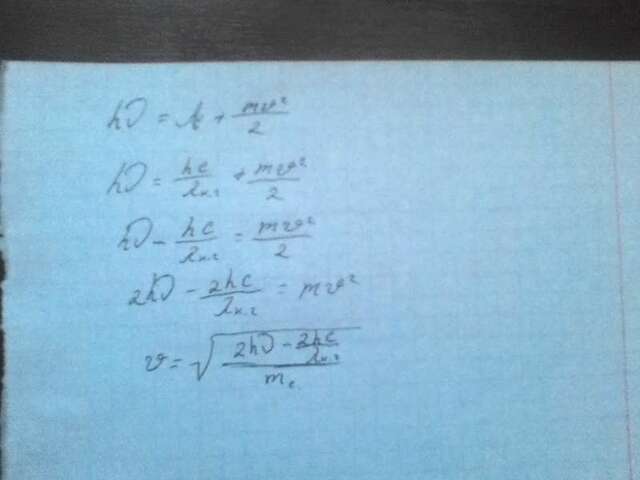 hν = A + mv²/2
hν = hc/λк.г + mv²/2
hν - hc/λк.г = mv²/2
2hν - 2hc/λк.г = mv²
v = √((2hν - 2hc/λк.г)/mе)